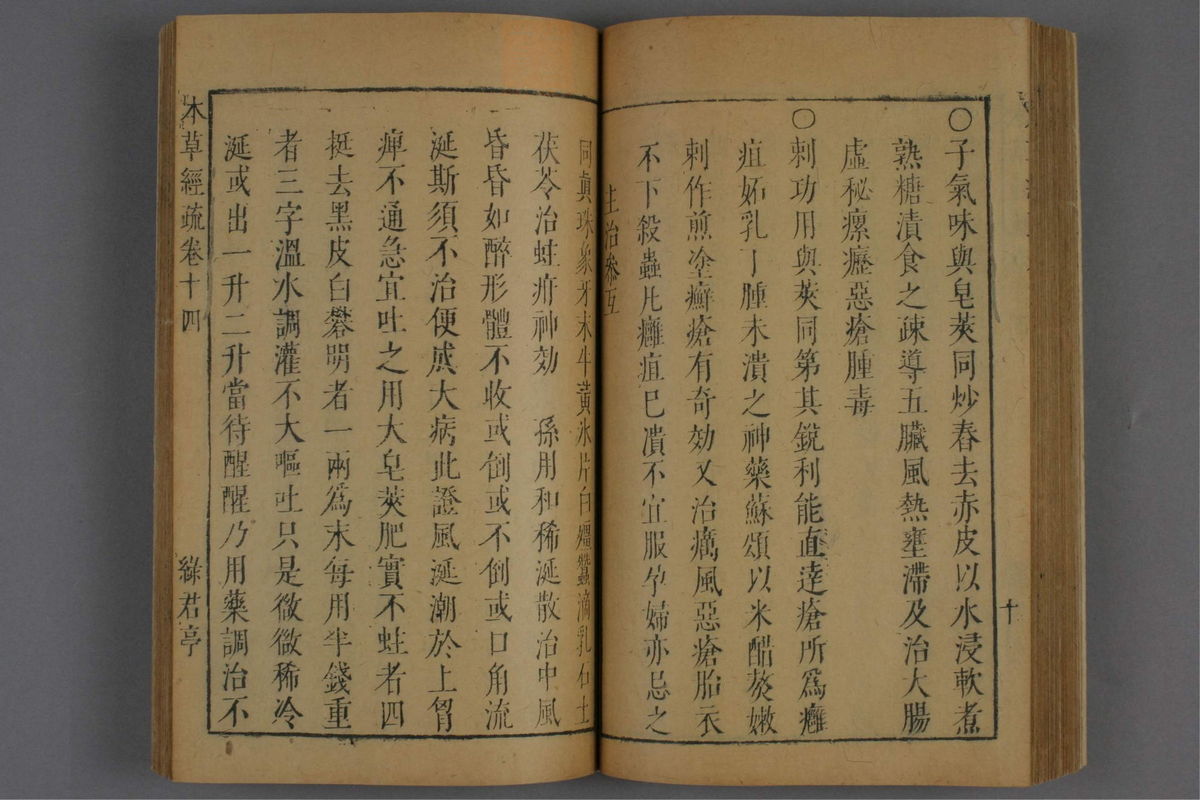 〇子氣味與皂莢同炒舂去赤皮以水浸軟煮
熟糖漬食之疎導五臟風熱壅滯及治大腸
虛秘瘰癧惡瘡腫毒
〇刺功用與莢同第其銳利能直達瘡所爲癰
疽妬乳丁腫未潰之神藥蘇頌以米醋熬嫩
刺作煎塗癬瘡有奇効又治癘風惡瘡胎衣
不下殺蟲凡癰疽巳潰不宜服孕婦亦忌之
十
主治參互
同眞珠象牙末牛黃氷片白殭蠶滴乳石土
茯苓治蛀疳神効　孫用和稀涎散治中風
昏昏如醉形體不收或倒或不倒或口角流
涎斯須不治便成大病此證風涎潮於上胷
痺不通急宜吐之用大皂莢肥實不蛀者四
挺去黑皮白礬明者一兩爲末每用半錢重
者三字溫水調灌不大嘔吐只是微微稀冷
涎或出一升二升當待醒醒乃用藥調治不
本草經疏卷十四
綠君亭